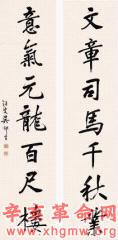 文章司馬千秋業
意氣元龍百尺樓
辛亥革命网
www.xhgmw.org